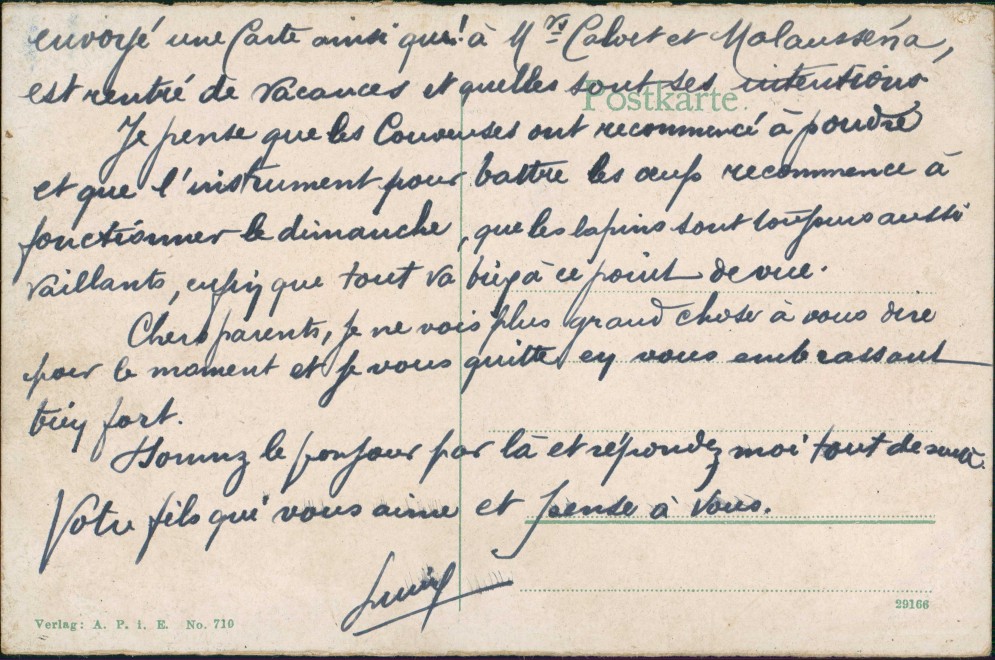 envoyé une Carte ainsi qu'à Mrs Calvet et Malausséna,
est rentré de vacances et quelles sont ses intentions
Postkarte.
Je pense que les Couveuses ont recommencé à pondre
et que l'instrument pour battre les œufs recommence à
fonctionner le dimanche, que les lapins sont toujours aussi
vaillants, enfin que tout va bien à ce point de vue.
Chers parents, je ne vois plus grand chose à vous dire
pour le moment et je vous quitte en vous embrassant
bien fort.
Donnez le bonjour par là et répondez moi tout de suite.
Votre fils qui vous aime et pense à vous.
Verlag: A. P. i. E. No. 710
29166